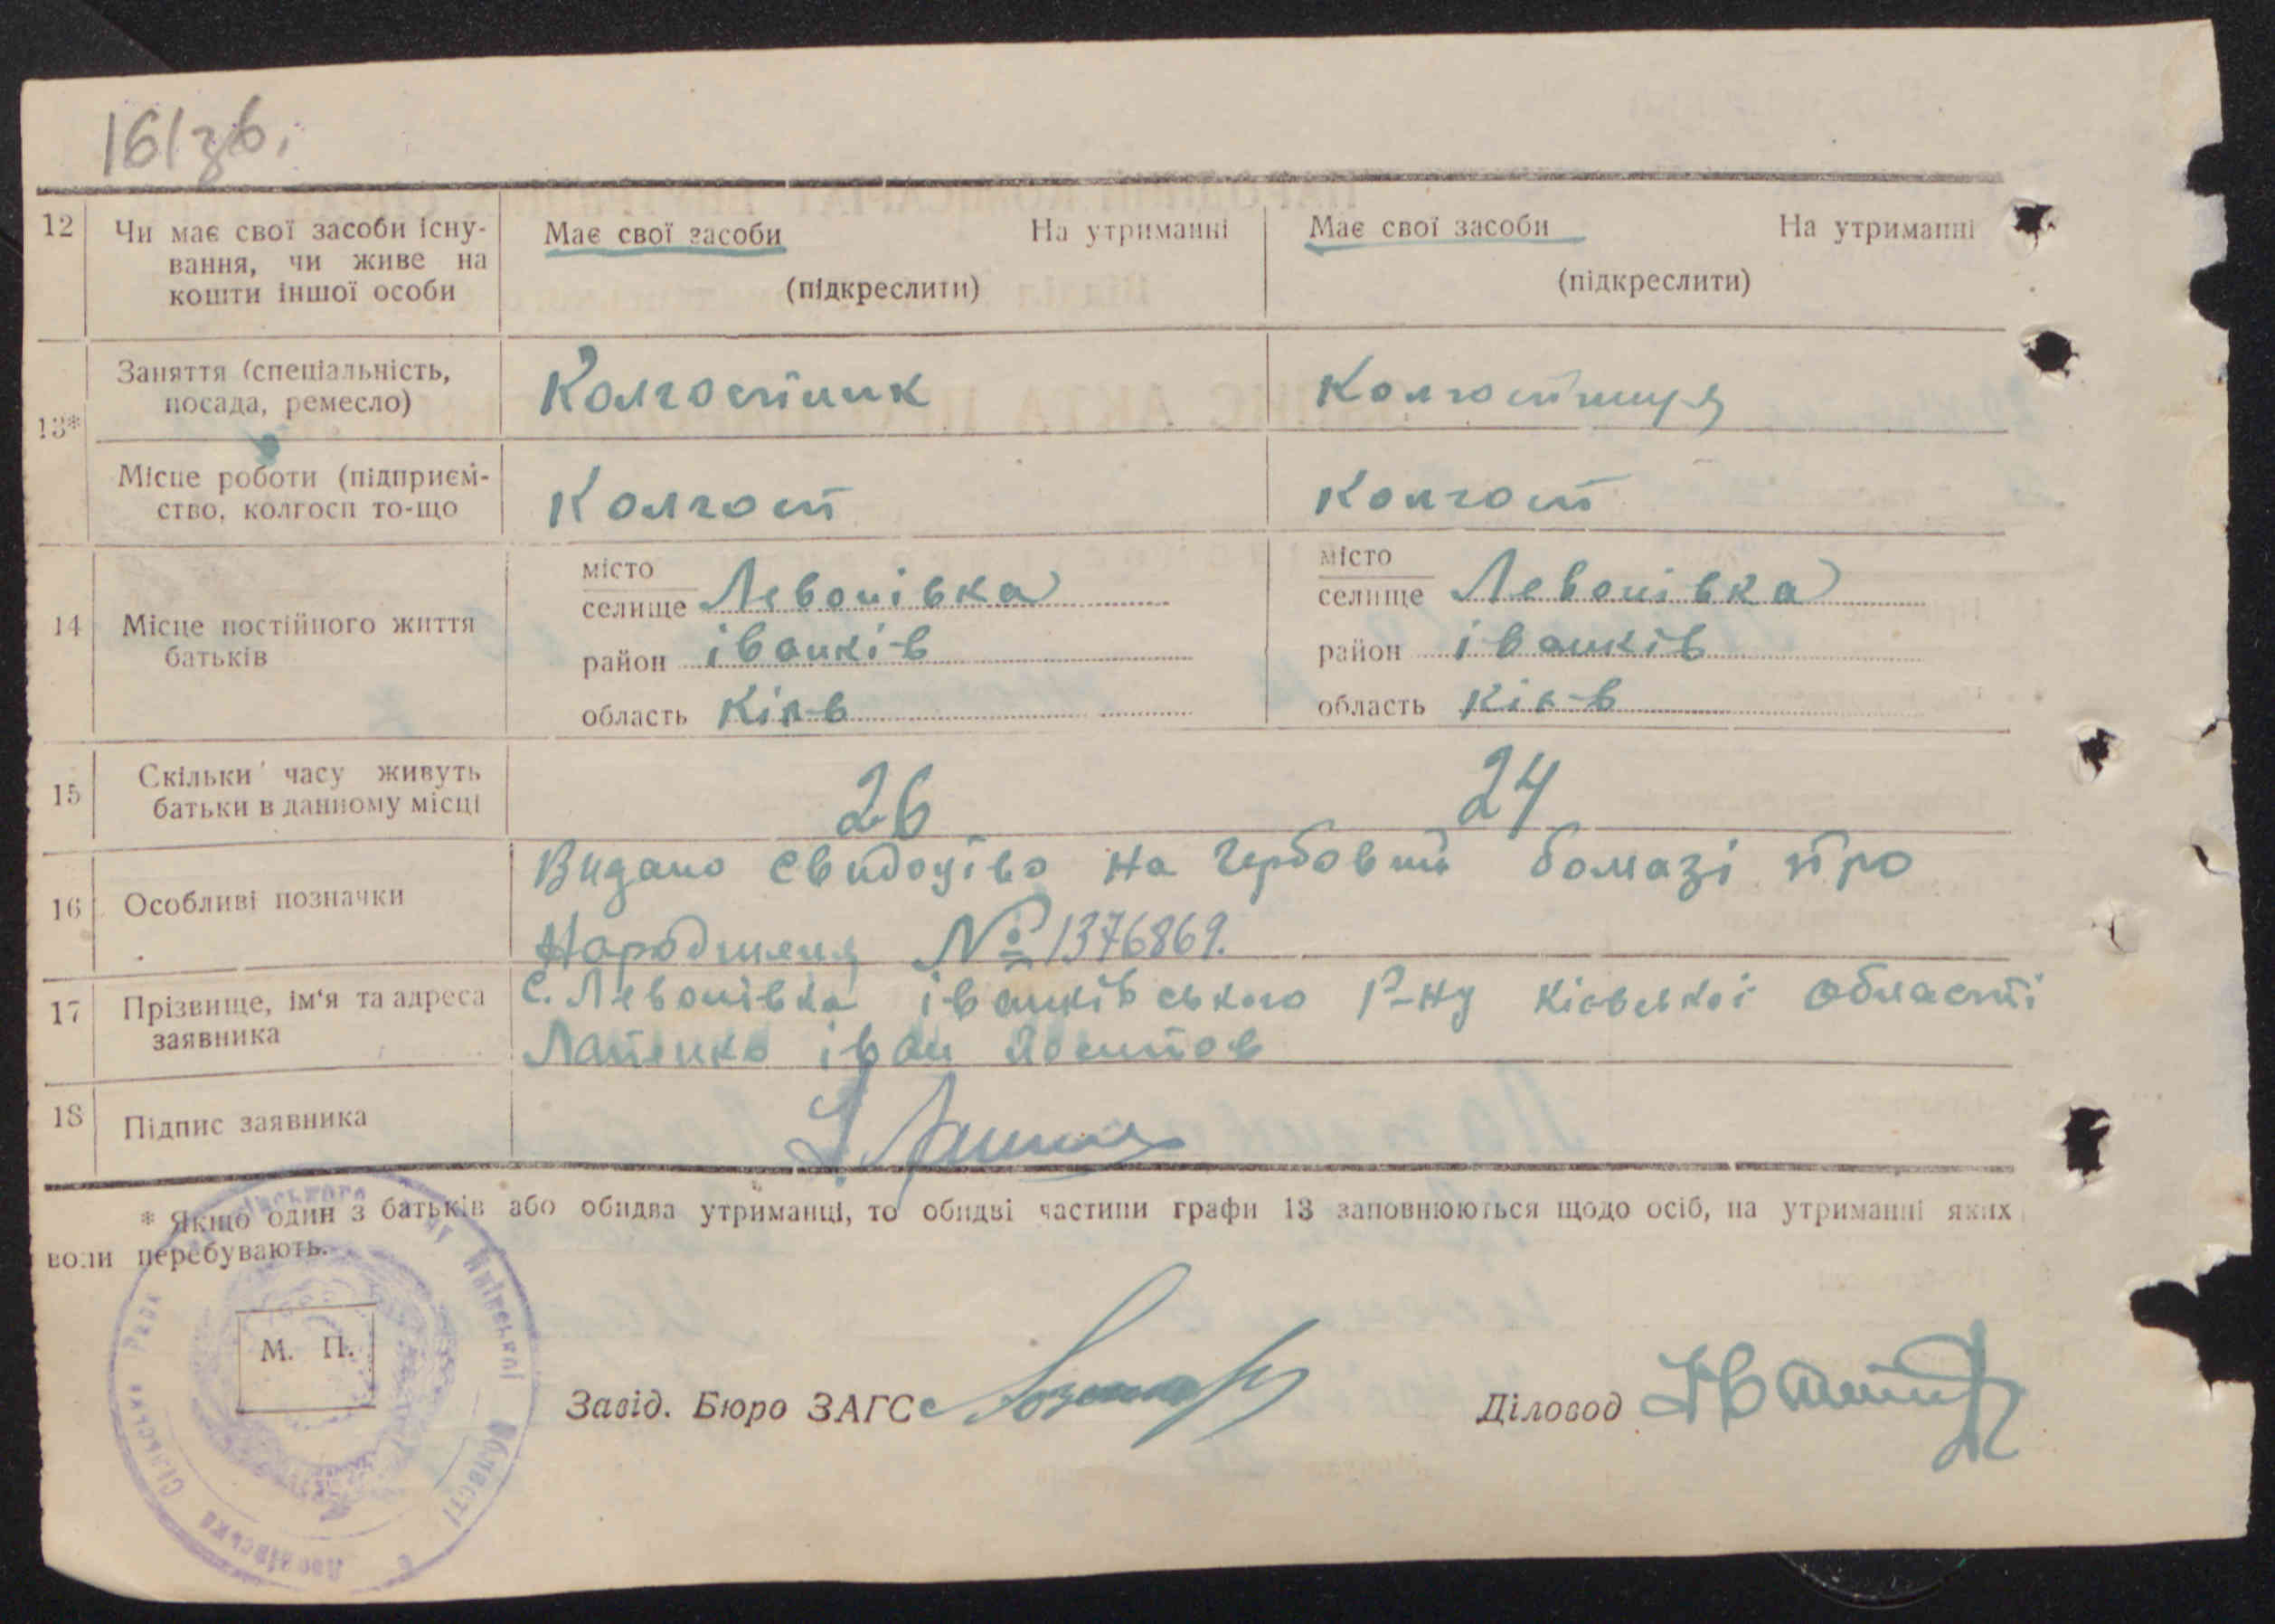 161 зв.
12 Чи має свої засоби існу-
вання, чи живе на
кошти іншої особи
Має свої засоби На утриманні
(підкреслити)
Має свої засоби На утриманні
(підкреслити)
13*
Заняття (спеціальність,
посада, ремесло)
Колгостник
Колгостниця
Місце роботи (підприєм-
ство, колгосп то-що
Колгост
Колгост
14 Місце постійного життя
батьків
місто
селище Левонівка
район іванків
область Ків-в
місто
селище Левонівка
район іванків
область Ків-в
15 Скільки часу живуть
батьки в данному місці
26
24
16 Особливі позначки
Видано свидоцтво на Гербовій бомазі про
Народження № 1376869.
17 Прізвище, ім'я та адреса
заявника
с. Левонівка іванківського Р-ну Ківської області
Лапенко іван
18 Підпис заявника
* Якщо один з батьків або обидва утриманці, то обидві частини графи 13 заповнюються щодо осіб, на утриманні яких
вони перебувають.
М. П.
Завід. Бюро ЗАГС
Діловод
Сільська Рада
Київської Області